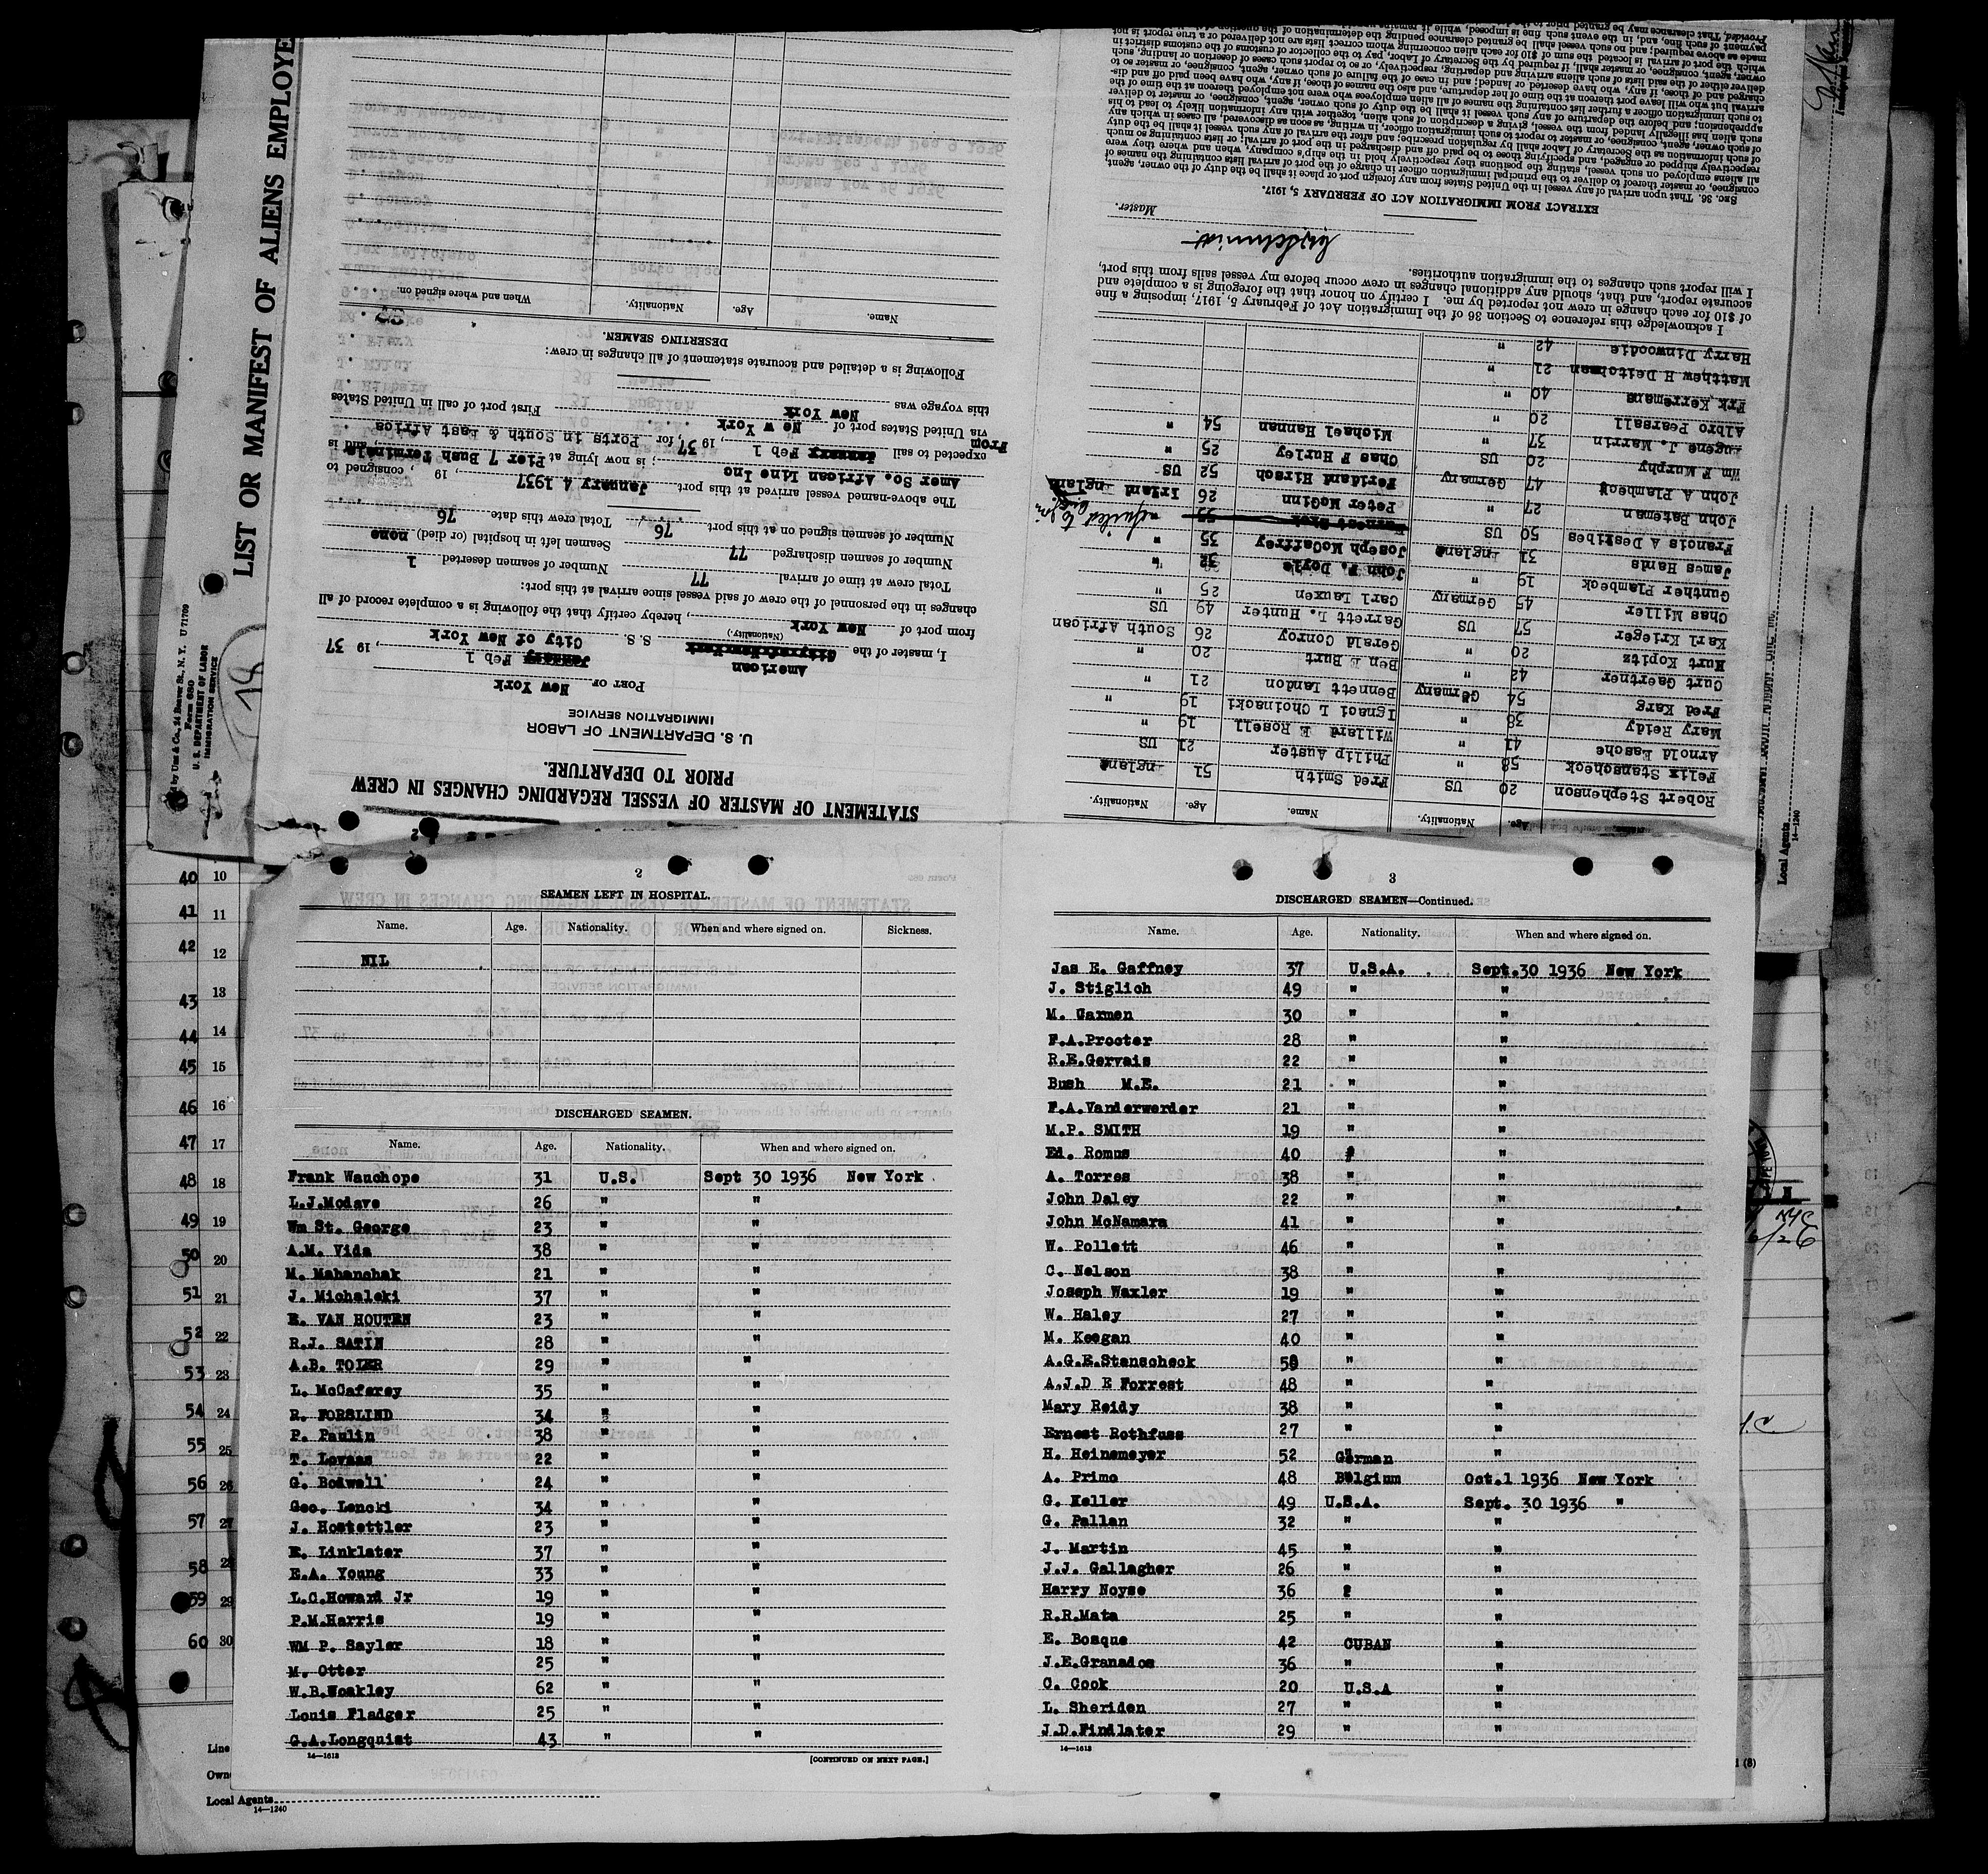 LIST OR MANIFEST OF ALIENS EMPLOYE
by Unz & Co., 24 Beaver St., N. Y. U 71709
Form 680
U. S. DEPARTMENT OF LABOR
IMMIGRATION SERVICE
STATEMENT OF MASTER OF VESSEL REGARDING CHANGES IN CREW
PRIOR TO DEPARTURE.
U. S. DEPARTMENT OF LABOR
IMMIGRATION SERVICE
PORT OF New York
January Feb 1, 19 37
American
I, master of the City of New York S. S. City of New York
(Nationality.)
from port of New York, hereby certify that the following is a complete record of all
changes in the personnel of the crew of said vessel since arrival at this port:
Total crew at time of arrival 77 Number of seamen deserted 1
Number of seamen discharged 77 Seamen left in hospital (or died) none
Number of seamen signed on at this port 76 Total crew this date 76
The above-named vessel arrived at this port January 4 1937, 19 , consigned to
Amer So. African Line Inc; is now lying at Pier 7 Bush Terminals, and is
expected to sail January Feb 1, 19 37, for Ports in South & East Africa
From
via United States port of New York First port of call in United States
this voyage was New York
Following is a detailed and accurate statement of all changes in crew:
DESERTING SEAMEN.
Name. Age. Nationality. When and where signed on.
Name. Age. Nationality. Name. Age. Nationality.
Robert Stephenson 20 US Fred Smith 51 England
Felix Stanscheck 58 " Philip Auster 21 US
Arnold Easche 41 " Willard E Rosell 19 "
Mary Reidy 38 " Ignaci L Choinacki 19 "
Fred Karg 54 Germany Bennett Landon 21 "
Curt Gaertner 42 " Ben E Burt 20 "
Kurt Kopitz 20 " Gerald Conroy 26 South African
Karl Krieger 57 US Garrett L. Hunter 49 US
Chas Miller 45 Germany Carl Lauxen 25 "
Gunther Plambeck 19 " John F. Doyle 32 "
James Hards 31 England Joseph McCaffrey 35 "
Francis A Desribes 50 US
John Bateman 27 " Peter McGinn 26 Irland
John A Plambeck 47 Germany Feridand Hirsch 52 US
Wm F Murphy 20 US Chas F Hurley 25 "
Eugene J. Marrin 37 " Michael Hannan 54 "
Albro Pearsall 20 "
Frk Kerremans 40 "
Matthew H Deitelman 21 "
Harry Dinwoodie 42 "
I acknowledge this reference to Section 36 of the Immigration Act of February 5, 1917, imposing a fine
of $10 for each change in crew not reported by me. I certify on honor that the foregoing is a complete and
accurate report, and that, should any additional changes in crew occur before my vessel sails from this port,
I will report such changes to the immigration authorities.
Master.
EXTRACT FROM IMMIGRATION ACT OF FEBRUARY 5, 1917.
SEC. 36. That upon arrival of any vessel in the United States from any foreign port or place it shall be the duty of the owner, agent,
consignee, or master thereof to deliver to the principal immigration officer in charge of the port of arrival lists containing the names of
all aliens employed on such vessel, stating the positions they respectively hold in the ship's company, when and where they were
respectively shipped or engaged, and specifying those to be paid off and discharged in the port of arrival; or lists containing so much
of such information as the Secretary of Labor shall by regulation prescribe; and after the arrival of any such vessel it shall be the duty
of such owner, agent, consignee, or master to report to such immigration officer, in writing, as soon as discovered, all cases in which any
such alien has illegally landed from the vessel, giving a description of such alien, together with any information likely to lead to his
apprehension; and before the departure of any such vessel it shall be the duty of such owner, agent, consignee, or master to deliver
to such immigration officer a further list containing the names of all alien employees who were not employed thereon at the time of the
arrival but who will leave port thereon at the time of her departure, and also the names of those, if any, who have been paid off and dis-
charged and of those, if any, who have deserted or landed; and in case of the failure of such owner, agent, consignee, or master so to
deliver either of the said lists of such aliens arriving and departing, respectively, or so to report such cases of desertion or landing, such
owner, agent, consignee, or master shall, if required by the Secretary of Labor, pay to the collector of customs of the customs district in
which the port of arrival is located the sum of $10 for each alien concerning whom correct lists are not delivered or a true report is not
made as above required; and no such vessel shall be granted clearance pending the determination of the question
payment of such fine, and, in the event such fine is imposed, while it remains
Provided, That clearance may be granted prior to the
Local Agents
14—1240
2
SEAMEN LEFT IN HOSPITAL.
Name. Age. Nationality. When and where signed on. Sickness.
NIL
DISCHARGED SEAMEN.
Name. Age. Nationality. When and where signed on.
Frank Wauchope 31 U.S. Sept 30 1936 New York
L.J.Modave 26 " "
Wm St. George 23 " "
A.M. Vida 38 " "
M. Mahanchak 21 " "
J. Michaleki 37 " "
E. VAN HOUTEN 23 " "
R.J. SATIN 28 " "
A.B. TOIER 29 " "
L. McCaferey 35 " "
R. FORSLIND 34 " "
P. Paulin 38 " "
T. Lovaas 22 " "
G. Bodwell 24 " "
Geo. Lencki 34 " "
J. Hostettler 23 " "
E. Linklater 37 " "
E.A. Young 33 " "
L.C.Howard Jr 19 " "
P.M.Harris 19 " "
WM P. Sayler 18 " "
M. Otter 25 " "
W.B.Woakley 62 " "
Louis Fladger 25 " "
G.A.Longquist 43 " "
14—1613
[CONTINUED ON NEXT PAGE.]
3
DISCHARGED SEAMEN—Continued.
Name. Age. Nationality. When and where signed on.
Jas E. Gaffney 37 U.S.A. Sept.30 1936 New York
J. Stiglich 49 " "
M. Garmen 30 " "
F.A.Procter 28 " "
R.E.Gervais 22 " "
Bush M.E. 21 " "
F.A.Vanderwerder 21 " "
M.P. SMITH 19 " "
Ed. Romus 40 "
A. Torres 38 " "
John Daley 22 " "
John McNamara 41 " "
W. Pollett 46 " "
C. Nelson 38 " "
Joseph Waxler 19 " "
W. Haley 27 " "
M. Keegan 40 " "
A.G.E.Stanscheck 58 " "
A.J.D E Forrest 48 " "
Mary Reidy 38 " "
Ernest Rothfuss 27 " "
H. Heinemeyer 52 German "
A. Primo 48 Belgium Oct.1 1936 New York
G. Keller 49 U.S.A. Sept. 30 1936 "
G. Pallan 32 " "
J. Martin 45 " "
J.J. Gallagher 26 " "
Harry Noyse 36 2 "
R.R.Mata 25 " "
E. Bosque 42 CUBAN "
J.E.Granados 36 " "
C. Cook 20 U.S.A "
L. Sheriden 27 " "
J.D.Findlater 29 " "
14—1613
40 10
41 11
42 12
43 13
44 14
45 15
46 16
47 17
48 18
49 19
50 20
51 21
52 22
53 23
54 24
55 25
56 26
57 27
58 28
59 29
60 30
Line
Own
Local Agents
14—1240